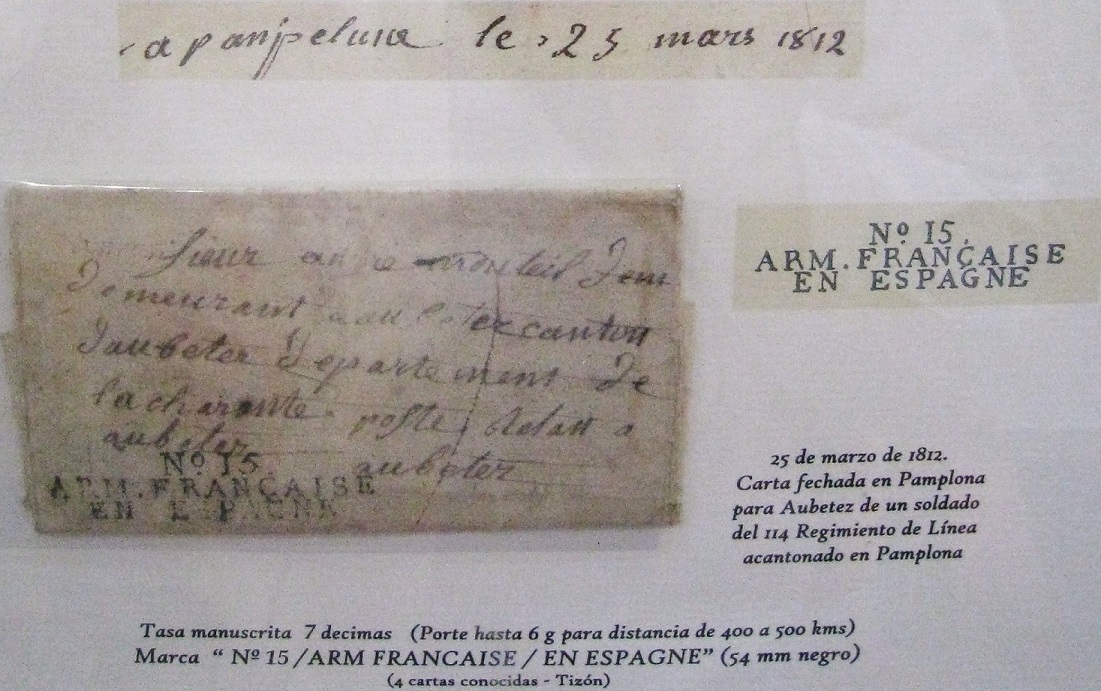 a panpelune le 25 mars 1812
sieur monteil dem
demeurant canton
daubeter departement de
la charante poste restan a
aubeter aubeter
Nº 15.
ARM. FRANÇAISE
EN ESPAGNE
Nº 15.
ARM. FRANÇAISE
EN ESPAGNE
25 de marzo de 1812.
Carta fechada en Pamplona
para Aubetez de un soldado
del 114 Regimiento de Línea
acantonado en Pamplona
Tasa manuscrita 7 decimas (Porte hasta 6 g para distancia de 400 a 500 kms)
Marca “ Nº 15 /ARM FRANCAISE / EN ESPAGNE” (54 mm negro)
(4 cartas conocidas - Tizón)